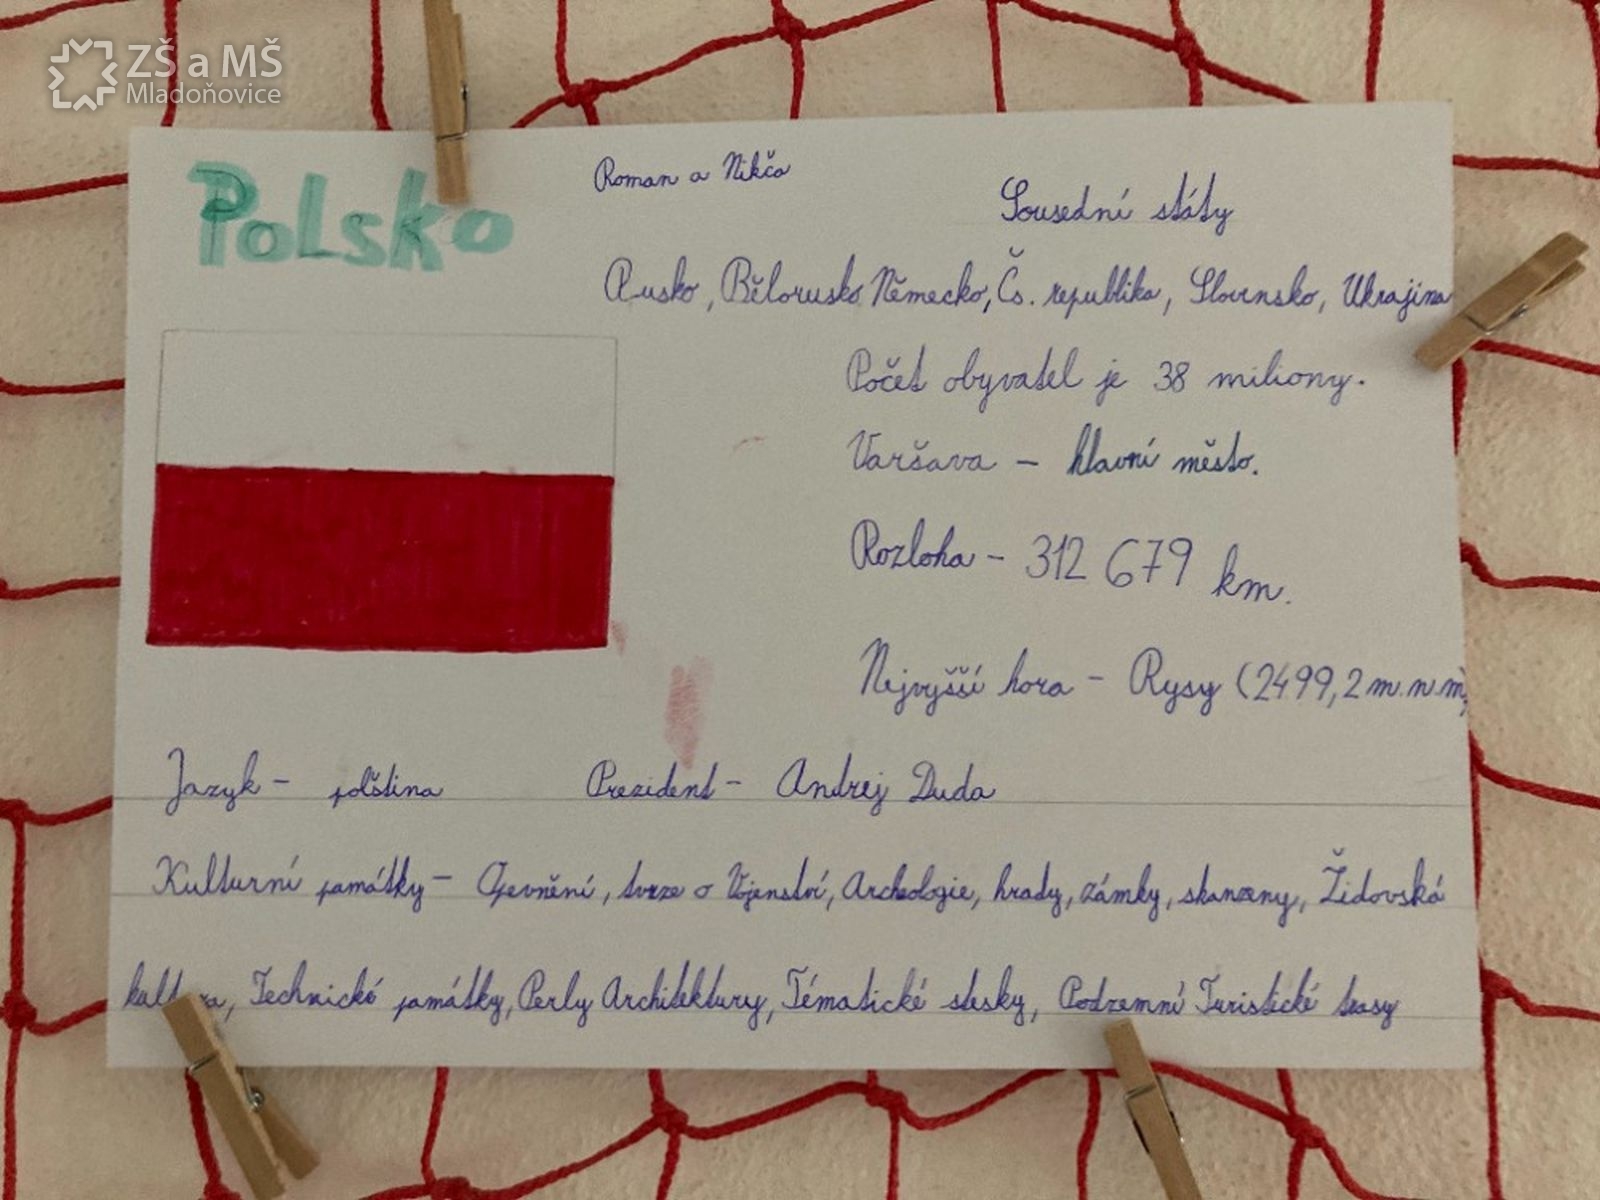 ZŠ a MŠ
Mladoňovice
Polsko
Roman a Nikča
Sousední státy
Rusko, Bělorusko Německo, Čs. republika, Slovensko, Ukrajina
Počet obyvatel je 38 miliony.
Varšava - hlavní město.
Rozloha - 312 679 km.
Nejvyšší hora - Rysy (2499,2 m.n.m)
Jazyk - polština
Prezident - Andrej Duda
Kulturní památky - Opevnění, tvrze o Vojenství, Archeologie, hrady, zámky, skanzeny, Židovská
Technické památky, Perly Architektury, Tématické stesky, Podzemní Turistické trasy